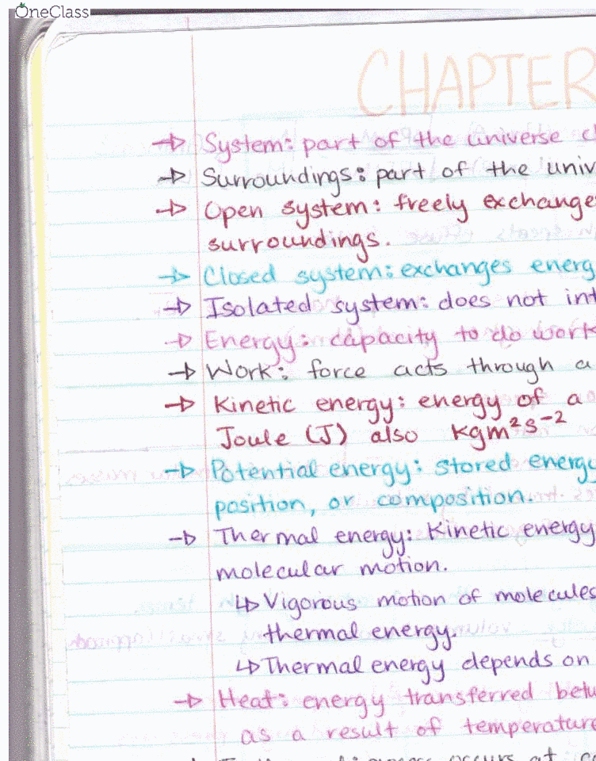 OneClass
CHAPTER
→ System: part of the universe
→ Surroundings: part of the
→ Open system: freely exchange
surroundings.
→ Closed system: exchanges
→ Isolated system: does not
→ Energy: capacity to do work
→ Work: force acts through a
→ Kinetic energy: energy of a
Joule (J) also kgm²s⁻²
→ Potential energy: stored energy
position, or composition.
→ Thermal energy: Kinetic energy
molecular motion.
↳ Vigorous motion of molecules
thermal energy.
↳ Thermal energy depends on
→ Heat: energy transferred
as a result of temperature